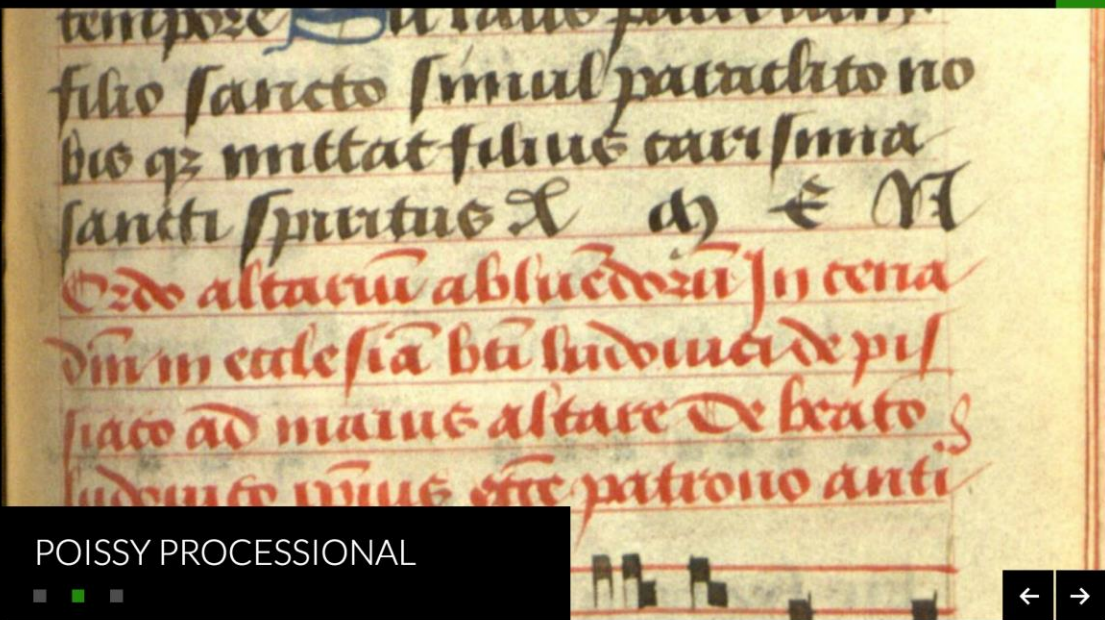 tempore Sit laus patri cum
filio sancto simul paraclito no
bis qz mittat filius carisma
sancti spiritus A M E N
Ordo altariū abluēdorū In cena
dn̄i in ecclesiā bt̄i ludouici de pis
siaco ad maius altare De beato
ludouico ip̄ius eccīe patrono anti
POISSY PROCESSIONAL